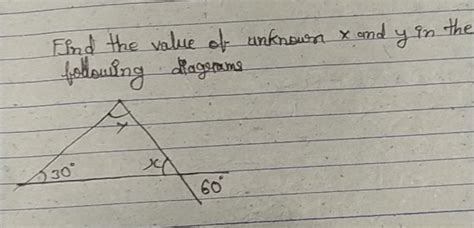 Find the value of unknown x and y in the
following diagrams
y
30°
x
60°